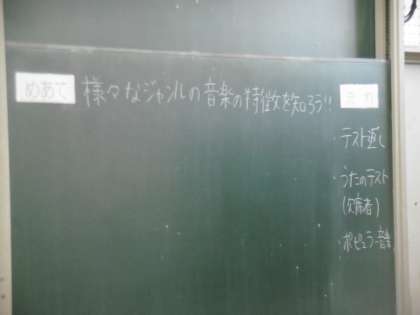 めあて 様々なジャンルの音楽の特徴を知ろう!!
・テスト返し
・うたのテスト
(欠席者)
・ポピュラー音楽